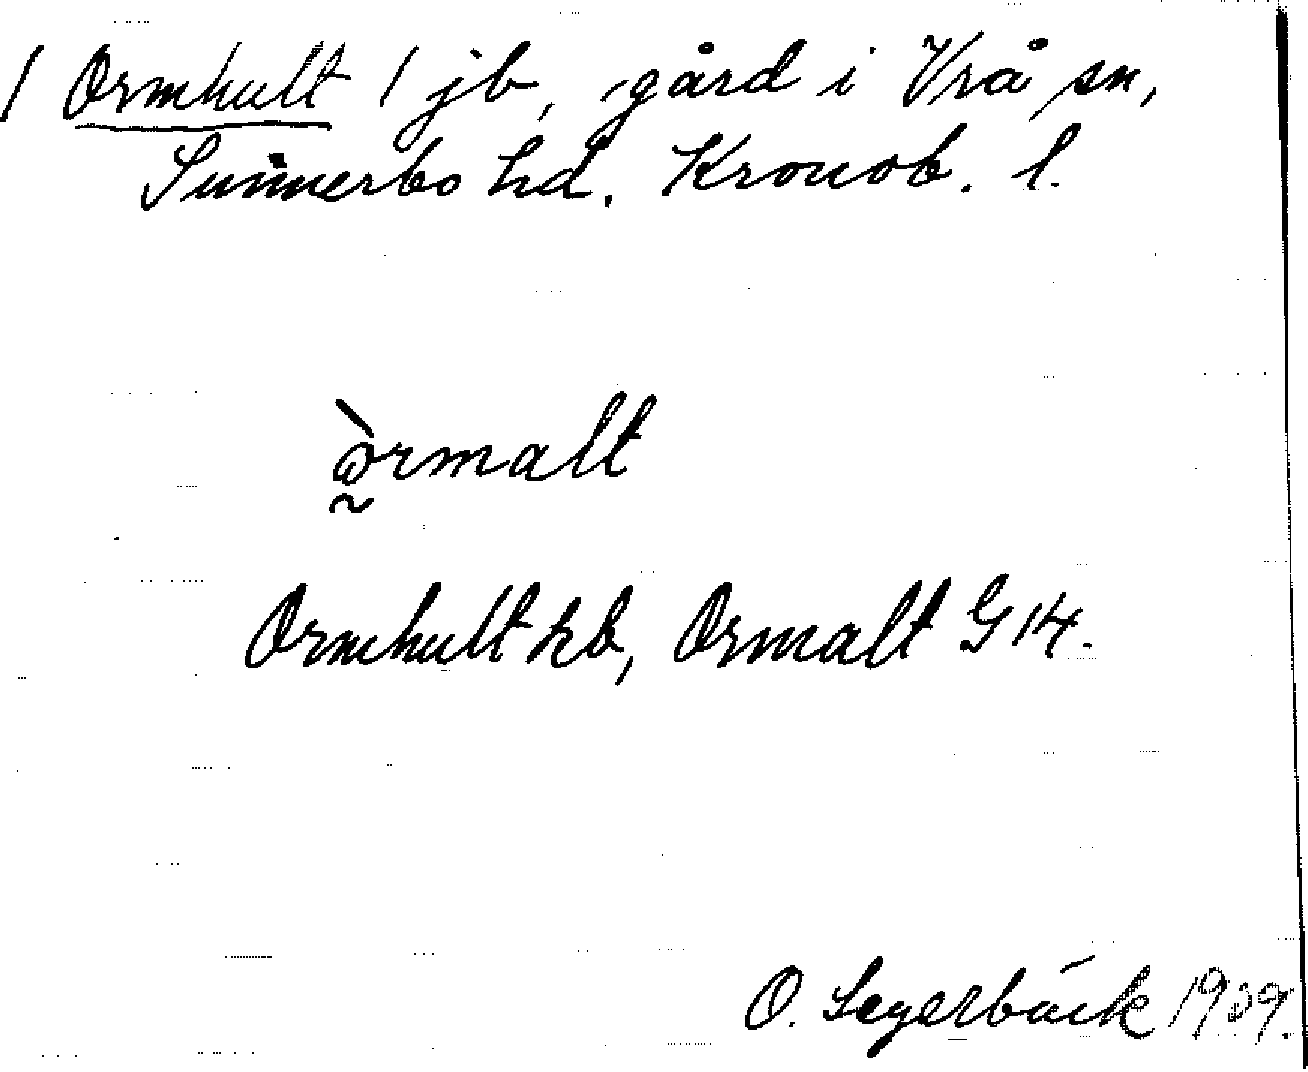 / Ormhult / jb, gård i Vrå sn,
Sunnerbo hd. Kronob. l.
ə̀rmalt
Ormhult kb, Ormalt G 14.
O. Segerbäck 1939.